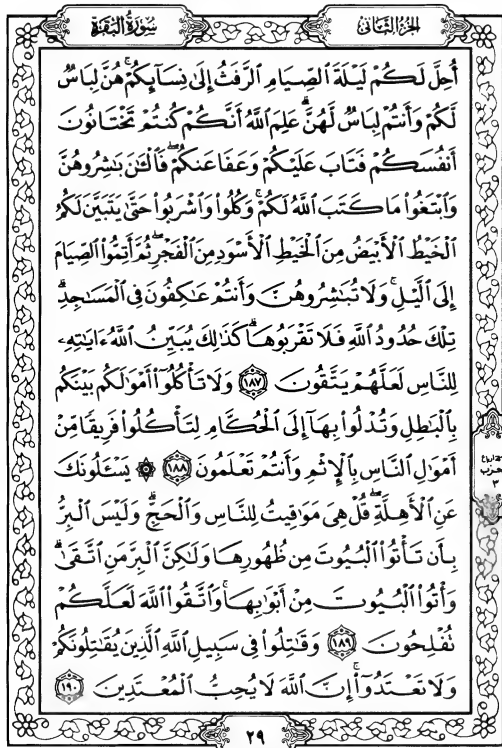 سورة البقرة
الجزء الثاني
أُحِلَّ لَكُمْ لَيْلَةَ ٱلصِّيَامِ ٱلرَّفَثُ إِلَىٰ نِسَآئِكُمْ ۚ هُنَّ لِبَاسٌ
لَّكُمْ وَأَنتُمْ لِبَاسٌ لَّهُنَّ ۗ عَلِمَ ٱللَّهُ أَنَّكُمْ كُنتُمْ تَخْتَانُونَ
أَنفُسَكُمْ فَتَابَ عَلَيْكُمْ وَعَفَا عَنكُمْ ۖ فَٱلْـَٰٔنَ بَـٰشِرُوهُنَّ
وَٱبْتَغُوا۟ مَا كَتَبَ ٱللَّهُ لَكُمْ ۚ وَكُلُوا۟ وَٱشْرَبُوا۟ حَتَّىٰ يَتَبَيَّنَ لَكُمُ
ٱلْخَيْطُ ٱلْأَبْيَضُ مِنَ ٱلْخَيْطِ ٱلْأَسْوَدِ مِنَ ٱلْفَجْرِ ۖ ثُمَّ أَتِمُّوا۟ ٱلصِّيَامَ
إِلَى ٱلَّيْلِ ۚ وَلَا تُبَـٰشِرُوهُنَّ وَأَنتُمْ عَـٰكِفُونَ فِى ٱلْمَسَـٰجِدِ ۗ
تِلْكَ حُدُودُ ٱللَّهِ فَلَا تَقْرَبُوهَا ۗ كَذَٰلِكَ يُبَيِّنُ ٱللَّهُ ءَايَـٰتِهِۦ
لِلنَّاسِ لَعَلَّهُمْ يَتَّقُونَ ١٨٧ وَلَا تَأْكُلُوٓا۟ أَمْوَٰلَكُم بَيْنَكُم
بِٱلْبَـٰطِلِ وَتُدْلُوا۟ بِهَآ إِلَى ٱلْحُكَّامِ لِتَأْكُلُوا۟ فَرِيقًا مِّنْ
أَمْوَٰلِ ٱلنَّاسِ بِٱلْإِثْمِ وَأَنتُمْ تَعْلَمُونَ ١٨٨ ۞ يَسْـَٔلُونَكَ
عَنِ ٱلْأَهِلَّةِ ۖ قُلْ هِىَ مَوَٰقِيتُ لِلنَّاسِ وَٱلْحَجِّ ۗ وَلَيْسَ ٱلْبِرُّ
بِأَن تَأْتُوا۟ ٱلْبُيُوتَ مِن ظُهُورِهَا وَلَـٰكِنَّ ٱلْبِرَّ مَنِ ٱتَّقَىٰ ۗ
وَأْتُوا۟ ٱلْبُيُوتَ مِنْ أَبْوَٰبِهَا ۚ وَٱتَّقُوا۟ ٱللَّهَ لَعَلَّكُمْ
تُفْلِحُونَ ١٨٩ وَقَـٰتِلُوا۟ فِى سَبِيلِ ٱللَّهِ ٱلَّذِينَ يُقَـٰتِلُونَكُمْ
وَلَا تَعْتَدُوٓا۟ ۚ إِنَّ ٱللَّهَ لَا يُحِبُّ ٱلْمُعْتَدِينَ ١٩٠
حزب
٣
٢٩